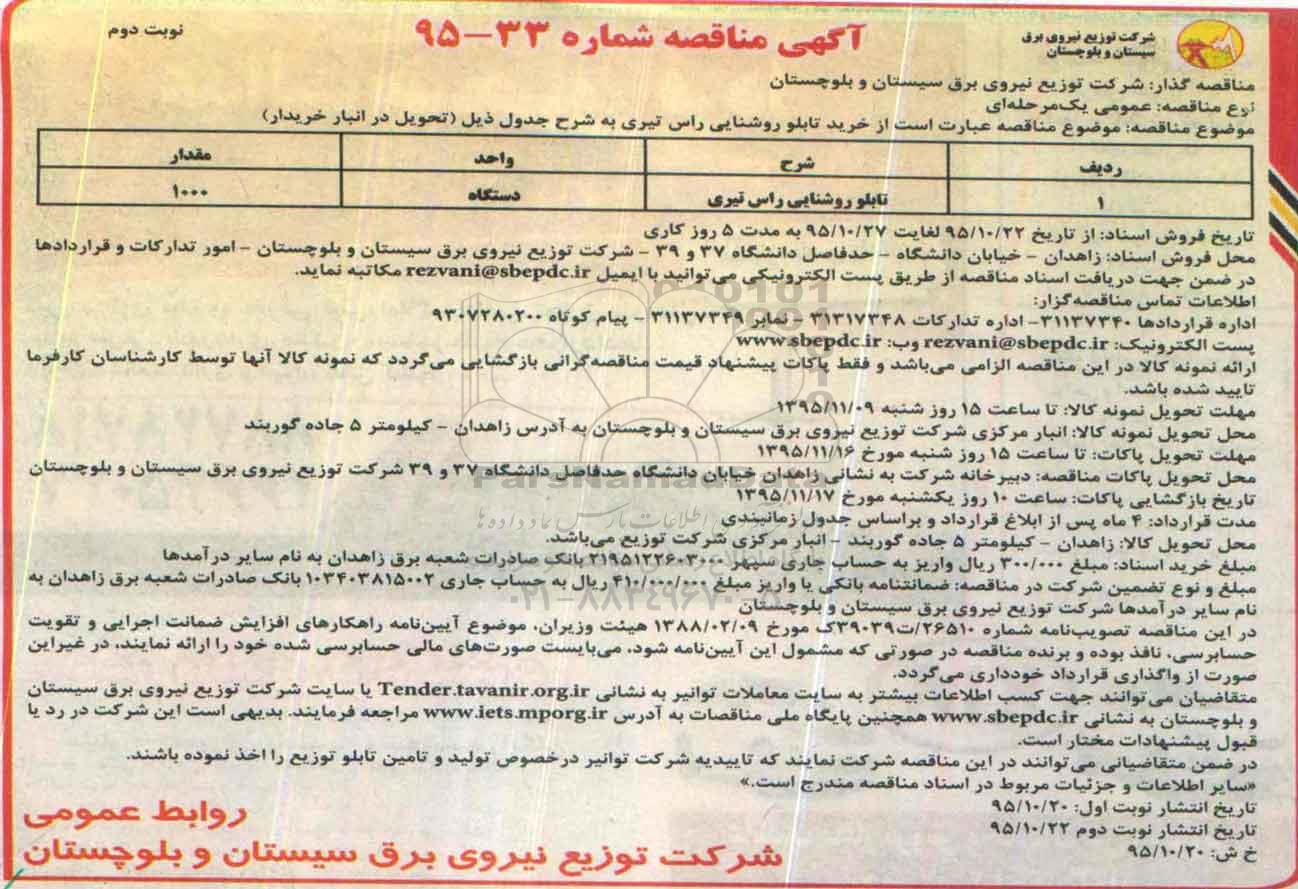 شرکت توزیع نیروی برق
سیستان و بلوچستان
آگهی مناقصه شماره ۳۳-۹۵
نوبت دوم
مناقصه گذار: شرکت توزیع نیروی برق سیستان و بلوچستان
نوع مناقصه: عمومی یک‌مرحله‌ای
موضوع مناقصه: موضوع مناقصه عبارت است از خرید تابلو روشنایی راس تیری به شرح جدول ذیل (تحویل در انبار خریدار)
ردیف شرح واحد مقدار
۱ تابلو روشنایی راس تیری دستگاه ۱۰۰۰
تاریخ فروش اسناد: از تاریخ ۹۵/۱۰/۲۲ لغایت ۹۵/۱۰/۲۷ به مدت ۵ روز کاری
محل فروش اسناد: زاهدان - خیابان دانشگاه - حدفاصل دانشگاه ۳۷ و ۳۹ - شرکت توزیع نیروی برق سیستان و بلوچستان - امور تدارکات و قراردادها
در ضمن جهت دریافت اسناد مناقصه از طریق پست الکترونیکی می‌توانید با ایمیل rezvani@sbepdc.ir مکاتبه نماید.
اطلاعات تماس مناقصه‌گزار:
اداره قراردادها ۳۱۱۳۷۳۴۰- اداره تدارکات ۳۱۳۱۷۳۴۸ - نمابر ۳۱۱۳۷۳۴۹ - پیام کوتاه ۹۳۰۷۲۸۰۲۰۰
پست الکترونیک: rezvani@sbepdc.ir وب: www.sbepdc.ir
ارائه نمونه کالا در این مناقصه الزامی می‌باشد و فقط پاکات پیشنهاد قیمت مناقصه‌گرانی بازگشایی می‌گردد که نمونه کالا آنها توسط کارشناسان کارفرما
تایید شده باشد.
مهلت تحویل نمونه کالا: تا ساعت ۱۵ روز شنبه ۱۳۹۵/۱۱/۰۹
محل تحویل نمونه کالا: انبار مرکزی شرکت توزیع نیروی برق سیستان و بلوچستان به آدرس زاهدان - کیلومتر ۵ جاده گوربند
مهلت تحویل پاکات: تا ساعت ۱۵ روز شنبه مورخ ۱۳۹۵/۱۱/۱۶
محل تحویل پاکات مناقصه: دبیرخانه شرکت به نشانی زاهدان خیابان دانشگاه حدفاصل دانشگاه ۳۷ و ۳۹ شرکت توزیع نیروی برق سیستان و بلوچستان
تاریخ بازگشایی پاکات: ساعت ۱۰ روز یکشنبه مورخ ۱۳۹۵/۱۱/۱۷
مدت قرارداد: ۴ ماه پس از ابلاغ قرارداد و براساس جدول زمانبندی
محل تحویل کالا: زاهدان - کیلومتر ۵ جاده گوربند - انبار مرکزی شرکت توزیع می‌باشد.
مبلغ خرید اسناد: مبلغ ۳۰۰/۰۰۰ ریال واریز به حساب جاری سپهر ۲۱۹۵۱۲۲۶۰۳۰۰۰ بانک صادرات شعبه برق زاهدان به نام سایر درآمدها
مبلغ و نوع تضمین شرکت در مناقصه: ضمانتنامه بانکی یا واریز مبلغ ۴۱۰/۰۰۰/۰۰۰ ریال به حساب جاری ۱۰۳۴۰۳۸۱۵۰۰۲ بانک صادرات شعبه برق زاهدان به
نام سایر درآمدها شرکت توزیع نیروی برق سیستان و بلوچستان
در این مناقصه تصویب‌نامه شماره ۲۶۵۱۰/ت۳۹۰۳۹ک مورخ ۱۳۸۸/۰۲/۰۹ هیئت وزیران، موضوع آیین‌نامه راهکارهای افزایش ضمانت اجرایی و تقویت
حسابرسی، نافذ بوده و برنده مناقصه در صورتی که مشمول این آیین‌نامه شود، می‌بایست صورت‌های مالی حسابرسی شده خود را ارائه نمایند، در غیراین
صورت از واگذاری قرارداد خودداری می‌گردد.
متقاضیان می‌توانند جهت کسب اطلاعات بیشتر به سایت معاملات توانیر به نشانی Tender.tavanir.org.ir یا سایت شرکت توزیع نیروی برق سیستان
و بلوچستان به نشانی www.sbepdc.ir همچنین پایگاه ملی مناقصات به آدرس www.iets.mporg.ir مراجعه فرمایند. بدیهی است این شرکت در رد یا
قبول پیشنهادات مختار است.
در ضمن متقاضیانی می‌توانند در این مناقصه شرکت نمایند که تاییدیه شرکت توانیر درخصوص تولید و تامین تابلو توزیع را اخذ نموده باشند.
«سایر اطلاعات و جزئیات مربوط در اسناد مناقصه مندرج است.»
تاریخ انتشار نوبت اول: ۹۵/۱۰/۲۰
تاریخ انتشار نوبت دوم ۹۵/۱۰/۲۲
خ ش: ۹۵/۱۰/۲۰
روابط عمومی
شرکت توزیع نیروی برق سیستان و بلوچستان
ParsNamadData
۰۲۱-۸۸۳۴۹۶۷۰